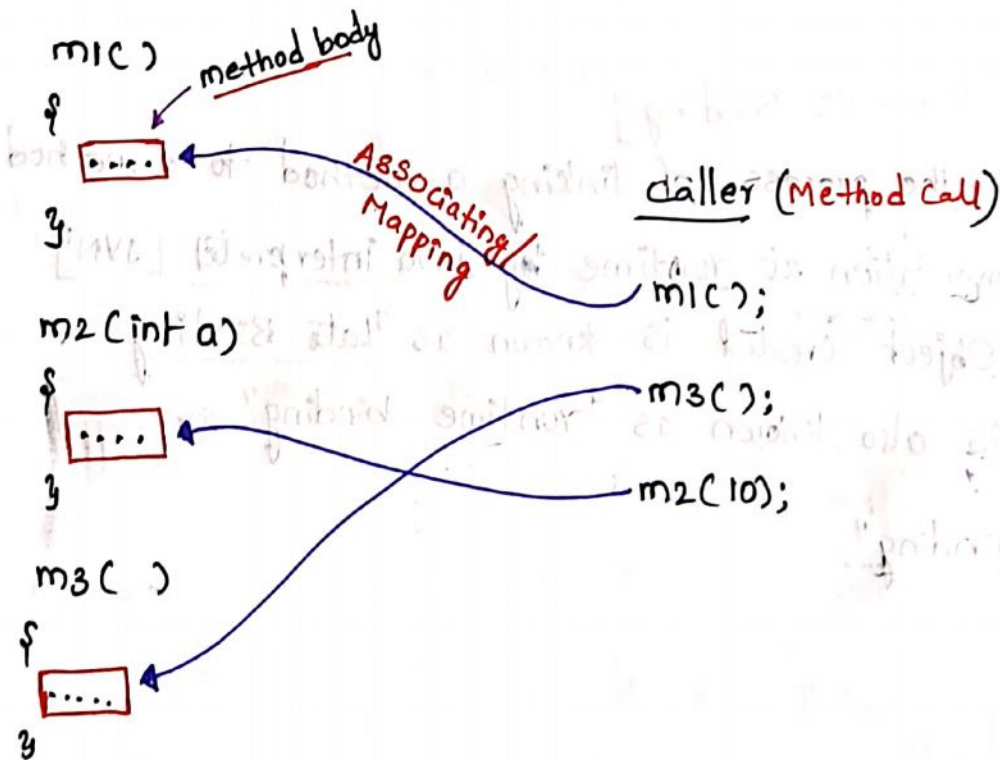 m1( )
method body
{
....
}
Associating/
Mapping
caller (Method call)
m1( );
m2(int a)
{
....
}
m3( );
m2(10);
m3( )
{
.....
}